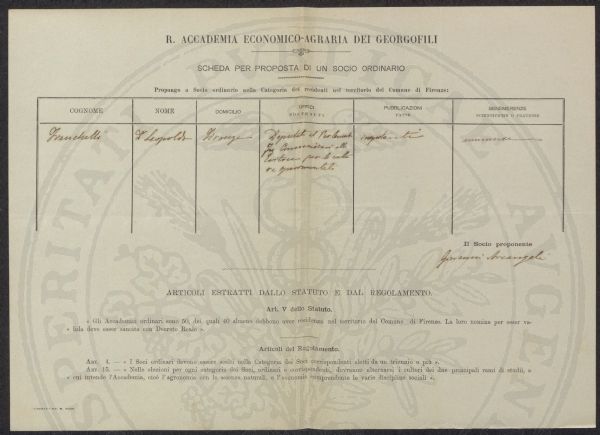 R. ACCADEMIA ECONOMICO-AGRARIA DEI GEORGOFILI
SCHEDA PER PROPOSTA DI UN SOCIO ORDINARIO
Propongo a Socio ordinario nella Categoria dei residenti nel territorio del Comune di Firenze:
COGNOME NOME DOMICILIO UFFICI SOSTENUTI PUBBLICAZIONI FATTE BENEMERENZE SCIENTIFICHE O PRATICHE
Franchetti Bne Leopoldo Firenze Deputato al Parlamento
per le
Il Socio proponente
Giovanni Arcangeli
ARTICOLI ESTRATTI DALLO STATUTO E DAL REGOLAMENTO.
Art. V dello Statuto.
« Gli Accademici ordinari sono 50, dei quali 40 almeno debbono aver residenza nel territorio del Comune di Firenze. La loro nomina per esser va-
« lida deve esser sancita con Decreto Reale ».
Articoli del Regolamento.
ART. 4. — « I Soci ordinari devono essere scelti nella Categoria dei Soci corrispondenti eletti da un triennio o più ».
ART. 15. — « Nelle elezioni per ogni categoria dei Soci, ordinari e corrispondenti, dovranno alternarsi i cultori dei due principali rami di studii, a
« cui intende l'Accademia, cioè l'agronomia con le scienze naturali, e l'economia comprendente le varie discipline sociali ».